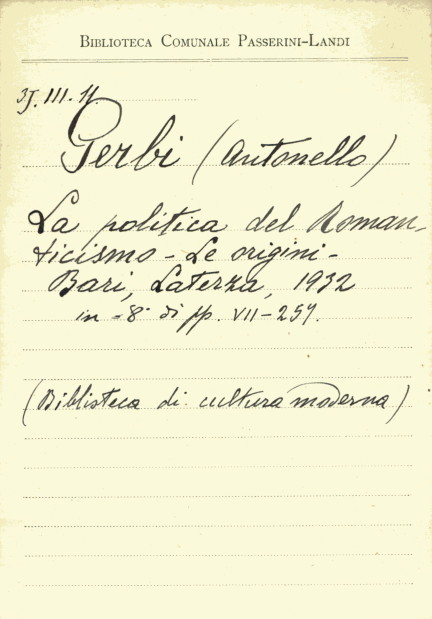 BIBLIOTECA COMUNALE PASSERINI-LANDI
3J. III. 11
Gerbi (Antonello)
La politica del Roman-
ticismo - Le origini -
Bari, Laterza, 1932
in -8° di pp. VII-257.
(Biblioteca di cultura moderna)